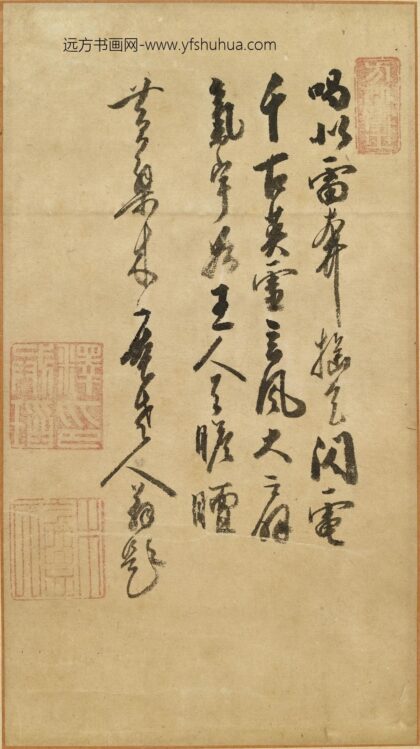 远方书画网-www.yfshuhua.com
喝似雷奔機如閃電
千古英靈玄風大
氣宇如王人天瞻
黃檗木老人題